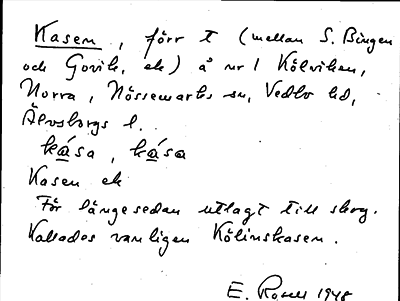 Kasen, förr t (mellan S. Bingen
och Govik, ek) å nr 1 Kölviken,
Norra, Nössemarks sn, Vedbo hd,
Älvsborgs l.
kása, kása
Kasen ek
För länge sedan utlagt till skog.
Kallades vanligen Kölinskasen.
E. 1948